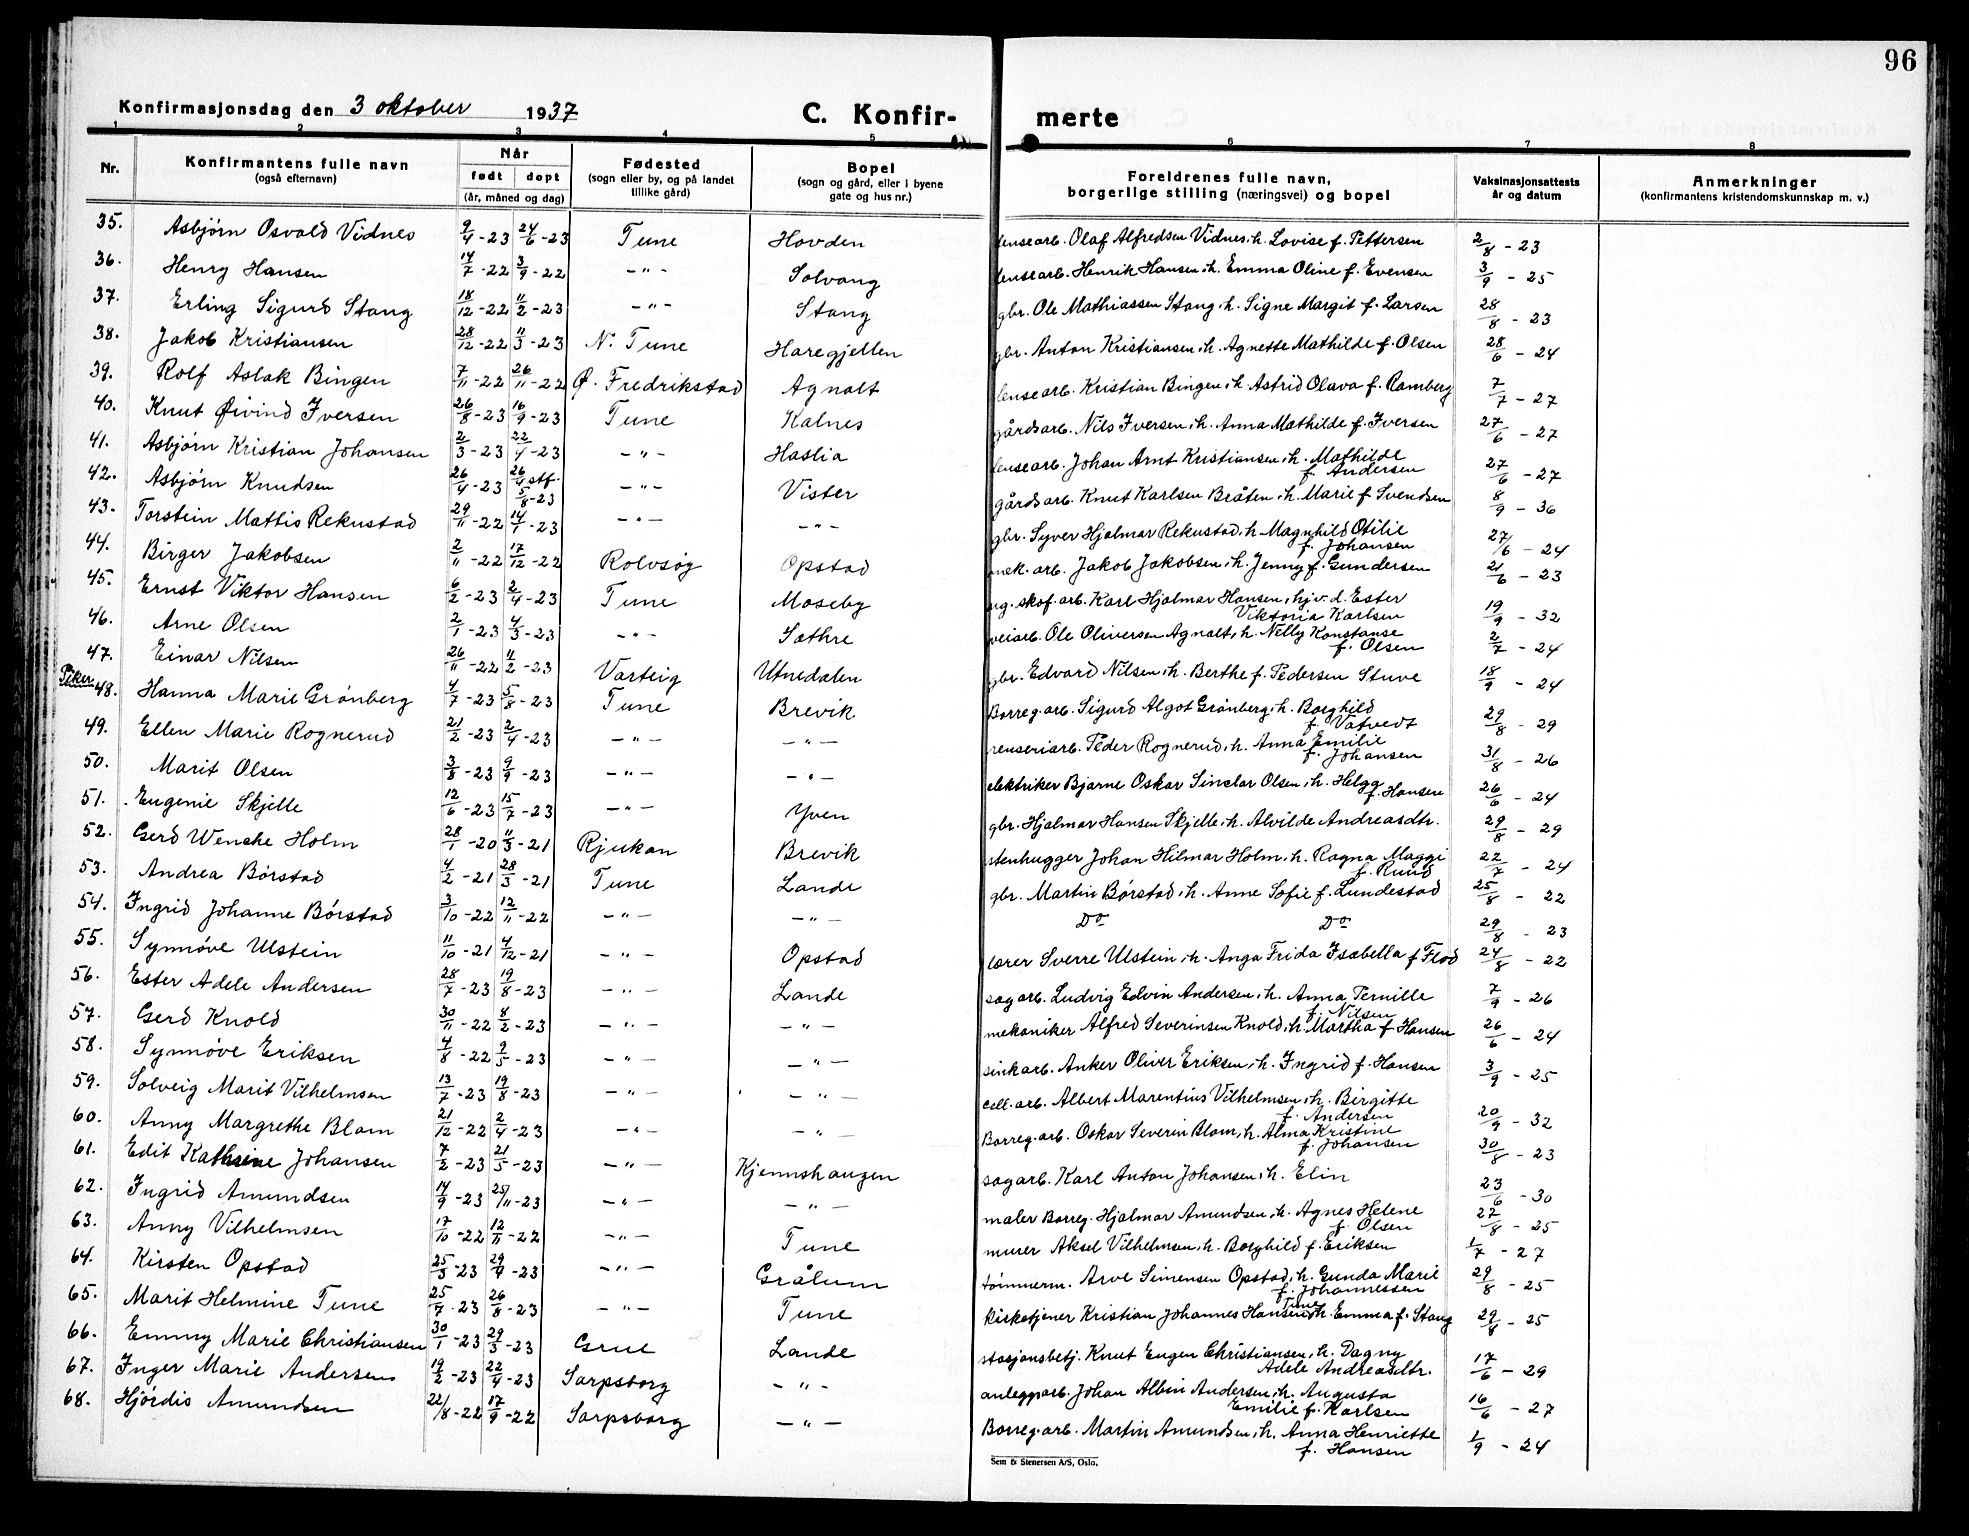 96
Konfirmasjonsdag den 3 oktober 1937 C. Konfir- merte
1 2 3 4 5 6 7 8
Nr. Konfirmantens fulle navn (også efternavn) Når født døpt (år, måned og dag) Fødested (sogn eller by, og på landet tillike gård) Bopel (sogn og gård, eller i byene gate og hus nr.) Foreldrenes fulle navn, borgerlige stilling (næringsvei) og bopel Vaksinasjonsattests år og datum Anmerkninger (konfirmantens kristendomskunnskap m. v.)
35. Asbjørn Osvald Vidnes 9/4-23 24/6-23 Tune Hovden lensearb. Olaf Alfredsen Vidnes, h. Lovise f. Pettersen 2/8 - 23
36. Henry Hansen 14/7-22 3/9-22 -"- Solvang lensearb. Henrik Hansen, h. Emma Oline f. Evensen 3/9 - 25
37. Erling Sigurd Stang 18/12-22 11/2-23 -"- Stang gbr. Ole Mathiassen Stang, h. Signe Margit f. Larsen 28/8 - 23
38. Jakob Kristiansen 28/12-22 11/3-23 N. Tune Haregjellen gbr. Anton Kristiansen, h. Agnette Mathilde f. Olsen 28/6 - 24
39. Rolf Aslak Bingen 7/11-22 26/11-22 Ø. Fredrikstad Agnalt lensearb. Kristian Bingen, h. Astrid Olava f. Ramberg 7/7 - 27
40. Knut Øivind Iversen 26/8-23 16/9-23 Tune Kalnes gårdsarb. Nils Iversen, h. Anna Mathilde f. Iversen 27/6 - 27
41. Asbjørn Kristian Johansen 2/3-23 22/4-23 -"- Haslia lensearb. Johan Arnt Kristiansen, h. Mathilde f. Andersen 27/6 - 27
42. Asbjørn Knudsen 26/4-23 26/4 stf. 5/8-23 -"- Vister gårdsarb. Knut Karlsen Bråten, h. Marie f. Svendsen 8/9 - 36
43. Torstein Mattis Rekustad 29/11-22 14/1-23 -"- -"- gbr. Syver Hjalmar Rekustad, h. Magnhild Otilie f. Johansen 27/6 - 24
44. Birger Jakobsen 2/11-22 17/12-22 Rolvsøy Opstad mek. arb. Jakob Jakobsen, h. Jenny f. Gundersen 21/6 - 23
45. Ernst Viktor Hansen 6/2-23 2/4-23 Tune Moseby skof. arb. Karl Hjalmar Hansen, hjv. d. Ester Viktoria Karlsen 19/9 - 32
46. Arne Olsen 2/1-23 4/3-23 -"- Sathre veiarb. Ole Oliversen Agnalt, h. Nelly Konstanse f. Olsen 2/7 - 24
47. Einar Nilsen 26/11-22 11/2-23 Varteig Utnedalen gbr. Edvard Nilsen, h. Berthe f. Pedersen Stuve 18/9 - 24
Piker
48. Hanna Marie Grønberg 4/7-23 5/8-23 Tune Brevik Borreg. arb. Sigurd Algot Grønberg, h. Borghild f. Vatvedt 29/8 - 29
49. Ellen Marie Rognerud 21/2-23 2/4-23 -"- -"- renseriarb. Peder Rognerud, h. Anna Emilie f. Johansen 31/8 - 26
50. Marit Olsen 3/8-23 9/9-23 -"- -"- elektriker Bjarne Oskar Sinclar Olsen, h. Helga f. Hansen 26/6 - 24
51. Eugenie Skjelle 12/6-23 15/7-23 -"- Yven gbr. Hjalmar Hansen Skjelle, h. Alvilde Andreasdtr. 29/8 - 29
52. Gerd Wenche Holm 28/1-20 11/3-21 Rjukan Brevik stenhugger Johan Hilmar Holm, h. Ragna Maggi f. Ruud 22/7 - 24
53. Andrea Børstad 4/2-21 28/3-21 Tune Lande gbr. Martin Børstad, h. Anne Sofie f. Lundestad 25/8 - 22
54. Ingrid Johanne Børstad 3/10-22 12/11-22 -"- -"- Do Do 29/8 - 23
55. Synnøve Ulstein 11/10-21 4/12-21 -"- Opstad lærer Sverre Ulstein, h. Anga Frida Isabella f Flod 24/8 - 22
56. Ester Adele Andersen 28/7-23 19/8-23 -"- Lande sagarb. Ludvig Edvin Andersen, h. Anna Pernille f. Nilsen 7/9 - 26
57. Gerd Knold 30/11-22 8/2-23 -"- -"- mekaniker Alfred Severinsen Knold, h. Martha f Hansen 26/6 - 24
58. Synnøve Eriksen 4/8-22 9/5-23 -"- -"- sinkarb. Anker Oliver Eriksen, h. Ingrid f. Hansen 3/9 - 25
59. Solveig Marit Vilhelmsen 13/7-23 19/8-23 -"- -"- cell. arb. Albert Marentius Vilhelmsen, h. Birgitte f. Andersen 20/9 - 32
60. Anny Margrethe Blom 21/12-22 2/4-23 -"- -"- Borreg. arb. Oskar Severin Blom, h. Alma Kristine f. Johansen 30/8 - 23
61. Edit Kathrine Johansen 7/2-23 21/5-23 -"- Kjennshaugen sagarb. Karl Anton Johansen, h. Elin 23/6 - 30
62. Ingrid Amundsen 14/9-23 25/11-23 -"- -"- maler Borreg. Hjalmar Amundsen, h. Agnes Helene f. Olsen 27/8 - 25
63. Anny Vilhelmsen 17/10-22 12/11-22 -"- Tune murer Aksel Vilhelmsen, h. Borghild f. Eriksen 1/7 - 27
64. Kirsten Opstad 25/3-23 29/4-23 -"- Grålum tømmerm. Arve Simensen Opstad, h. Gunda Marie f. Johannessen 29/8 - 25
65. Marit Helmine Tune 25/7-23 26/8-23 -"- Tune kirketjener Kristian Johannes Hansen Tune h. Emma f. Stang 29/8 - 25
66. Emmy Marie Christiansen 30/1-23 29/3-23 Grue Lande stasjonsbetj. Knut Eugen Christiansen, h. Dagny Adele Andreasdtr. 17/6 - 29
67. Inger Marie Andersen 19/2-23 22/4-23 Sarpsborg -"- anleggsarb. Johan Albin Andersen, h. Augusta Emilie f. Karlsen 16/6 - 27
68. Hjørdis Amundsen 22/8-22 17/9-22 Sarpsborg -"- Borreg. arb. Martin Amundsen, h. Anna Henriette f. Hansen 1/9 - 24
Sem & Stenersen A/S, Oslo.